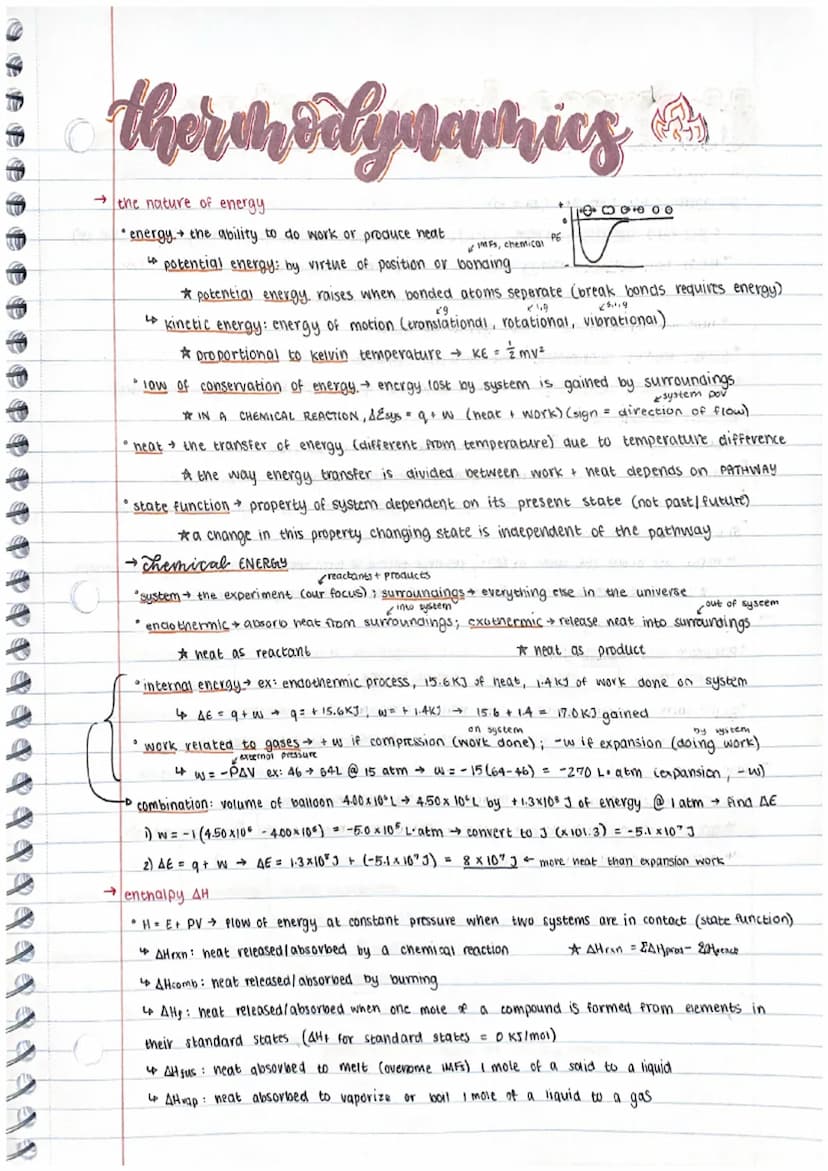 thermodynamics
→ the nature of energy
• energy → the ability to do work or produce heat
↙ IMFs, chemical
PE
+
0
-
↳ potential energy: by virtue of position or bonding
★ potential energy raises when bonded atoms seperate (break bonds requires energy)
↙g ↙l,g ↙s,l,g
↳ kinetic energy: energy of motion (translational, rotational, vibrational)
★ proportional to kelvin temperature → KE = ½mv²
• law of conservation of energy → energy lost by system is gained by surroundings
↙system pov
★ IN A CHEMICAL REACTION, ΔEsys = q + w (heat + work) (sign = direction of flow)
• heat → the transfer of energy (different from temperature) due to temperature difference
★ the way energy transfer is divided between work + heat depends on PATHWAY
• state function → property of system dependent on its present state (not past/future)
★ a change in this property changing state is independent of the pathway
→ chemical ENERGY
↙reactants + products
• system → the experiment (our focus); surroundings → everything else in the universe
↙into system ↙out of system
• endothermic → absorb heat from surroundings; exothermic → release heat into surroundings
★ heat as reactant ★ heat as product
• internal energy → ex: endothermic process, 15.6KJ of heat, 1.4KJ of work done on system
↳ ΔE = q + w → q = +15.6KJ, w = +1.4KJ → 15.6 + 1.4 = 17.0KJ gained
on system by system
• work related to gases → +w if compression (work done); -w if expansion (doing work)
↙external pressure
↳ w = -PΔV ex: 46 → 64L @ 15 atm → w = -15(64-46) = -270 L·atm (expansion, -w)
combination: volume of balloon 4.00x10⁶L → 4.50x10⁶L by +1.3x10⁸ J of energy @ 1 atm → find ΔE
1) w = -1(4.50x10⁶ - 4.00x10⁶) = -5.0x10⁵ L·atm → convert to J (x101.3) = -5.1x10⁷ J
2) ΔE = q + w → ΔE = 1.3x10⁸J + (-5.1x10⁷J) = 8x10⁷J ← more heat than expansion work
→ enthalpy ΔH
• H = E + PV → flow of energy at constant pressure when two systems are in contact (state function)
↳ ΔHrxn: heat released/absorbed by a chemical reaction ★ ΔHrxn = ΣΔHprod - ΣΔHreact
↳ ΔHcomb: heat released/absorbed by burning
↳ ΔHf: heat released/absorbed when one mole of a compound is formed from elements in
their standard states (ΔHf for standard states = 0 KJ/mol)
↳ ΔHfus: heat absorbed to melt (overcome IMFs) 1 mole of a solid to a liquid
↳ ΔHvap: heat absorbed to vaporize or boil 1 mole of a liquid to a gas